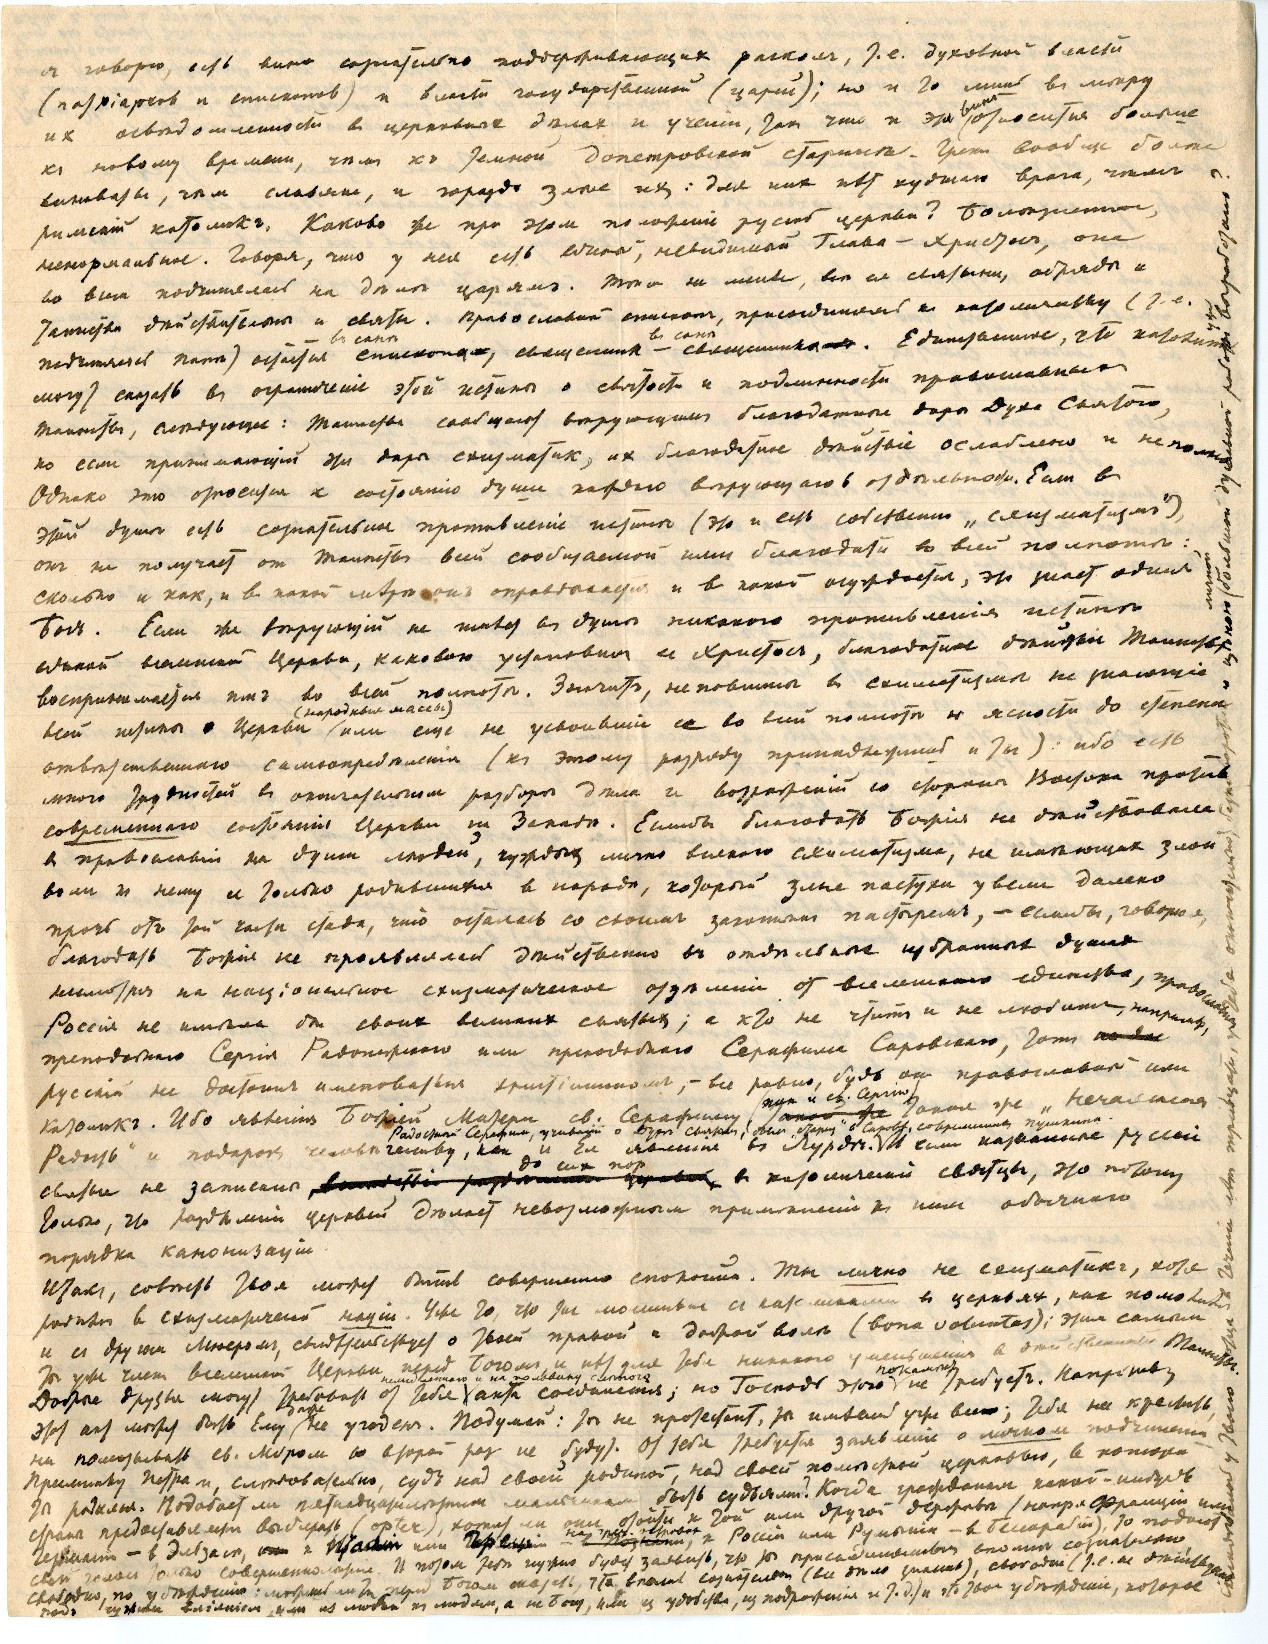 я говорю, есть вина сознательно поддерживающих расколъ, т.е. духовной власти
(патріарховъ и епископовъ) и власти государственной (царей); но и то лишь въ мѣру
их освѣдомленности в церковныхъ дѣлах и ученіи, так что и эта вина относится больше
къ новому времени, чѣмъ къ темной допетровской старинѣ. Греки вообще болѣе
виноваты, чѣм славяне, и гораздо злѣе их: для них нѣт худшаго врага, чѣмъ
римскій католикъ. Каково же при этом положеніе русской церкви? Болѣзненное,
ненормальное. Говоря, что у нея есть единый, невидимый Глава – Христосъ, она
во всем подчинялась на дѣлѣ царямъ. Тѣм не менѣе, всѣ ея святыни, обряды и
Таинства дѣйствительны и святы. Православный епископъ, присоединяясь к католичеству (т.е.
подчиняясь папѣ) остается въ санѣ епископа, священник – въ санѣ священника. Единственное, что католики
могут сказать въ ограниченіе этой истины о святости и подлинности православныхъ
таинствъ, слѣдующее: Таинства сообщают вѣрующимъ благодатные дары Духа Святого,
но если принимающій эти дары схизматик, их благодатное дѣйствіе ослаблено и неполно.
Однако это относится к состоянію души каждаго вѣрующаго в отдѣльности. Если в
этой душѣ есть сознательное противленіе истинѣ (это и есть собственно „схизматизмъ“),
она не получает от Таинствъ всей сообщаемой ими благодати во всей полнотѣ:
сколько и как, и в какой мѣрѣ она оправдывается и в какой осуждается, это знает один
Богъ. Если же вѣрующій не имѣет въ душѣ никакого противленія истинѣ
единой вселенской Церкви, каковою установил ее Христосъ, благодатное дѣйствіе Таинствъ
воспринимается имъ во всей полнотѣ. Значитъ, неповинны в схизматизмѣ не знающіе
всей истины о Церкви (народныя массы) или еще не усвоившіе ее во всей полнотѣ и ясности до степени
отвѣтственнаго самоопредѣленія (къ этому разряду принадлежишь и ты): ибо есть
много трудностей въ окончательном разборѣ дѣла и возраженій со стороны Востока противъ
современнаго состоянія Церкви на Западѣ. Еслибы благодать Божія не дѣйствовала
в православіи на души людей, чуждых лично всякаго схизматизма, не имѣющих злой
воли къ нему и только родившихся в народѣ, который злые пастухи увели далеко
прочь отъ той части стада, что осталась со своимъ законным пастыремъ, – еслибы, говорю,
благодать Божія не проявлялась дѣйственно въ отдѣльных избранных душах
несмотря на національное схизматическое отдѣленіе от вселенскаго единства, православная
Россія не имѣла бы своих великих святых; а кто не чтитъ и не любитъ, напримѣръ,
преподобнаго Сергія Радонежскаго или преподобнаго Серафима Саровскаго, тотъ
русскій не достоинъ именоваться христіаниномъ, – все равно, будь он православный или
католикъ. Ибо явленія Божіей Матери св. Серафиму (как и св. Сергію) такая же „Нечаянная
Радость“ и подарокъ человѣчеству, как и Ея явленіе въ Лурдѣ. И если названные русскіе
святые не записаны до сих пор в католическія святцы, это потому
только, что раздѣленіе церквей дѣлает невозможным примѣненіе к ним обычнаго
порядка канонизаціи.
Итакъ, совѣсть твоя может быть совершенно спокойна. Ты лично не схизматикъ, хотя
родился в схизматической націи. Уже то, что ты молишься съ католиками в церквах, как
и съ другим Мнѣромъ, свидѣтельствует о твоей правой и доброй волѣ (bona voluntas); этим самым
ты уже член вселенской Церкви перед Богомъ, и нѣт для тебя никакого уменьшенія в дѣйственности Таинствъ.
Добрые друзья могут требовать от тебя акта соединенія; но Господь этого покамѣст не требуетъ. Напротивъ,
этот акт может быть Ему даже не угоденъ. Подумай: ты не протестант, ты имѣешь уже все; тебя не крестить,
ни помазывать св. Мѵром во второй раз не будут. От тебя требуется заявленіе о личном подчиненіи
Преемнику Петра и, слѣдовательно, суд над своей родиной, над своей помѣстной церковью, в которой
ты родился. Подобает ли пятнадцатилѣтним мальчикам быть судьями? Когда гражданам какой-нибудь
страны предоставляют выбирать (opter), хотят ли они отойти к той или другой державѣ (напр. Франціи или
Германіи – в Эльзасѣ, к Россіи или Румыніи – в Бессарабіи), то подают
свой голос только совершеннолѣтніе. И потом тебѣ нужно будет заявить, что ты присоединяешься вполнѣ сознательно
свободно, по убѣжденію: можешь ли ты перед Богом сказать, что вполнѣ сознателен (все дѣло знаешь), свободен (т.е. не дѣйствуешь
под чужим вліяніем, или из любви къ людям, а не Богу, или из удобства, из подражанія и т.д.) и это твое убѣжденіе, которое